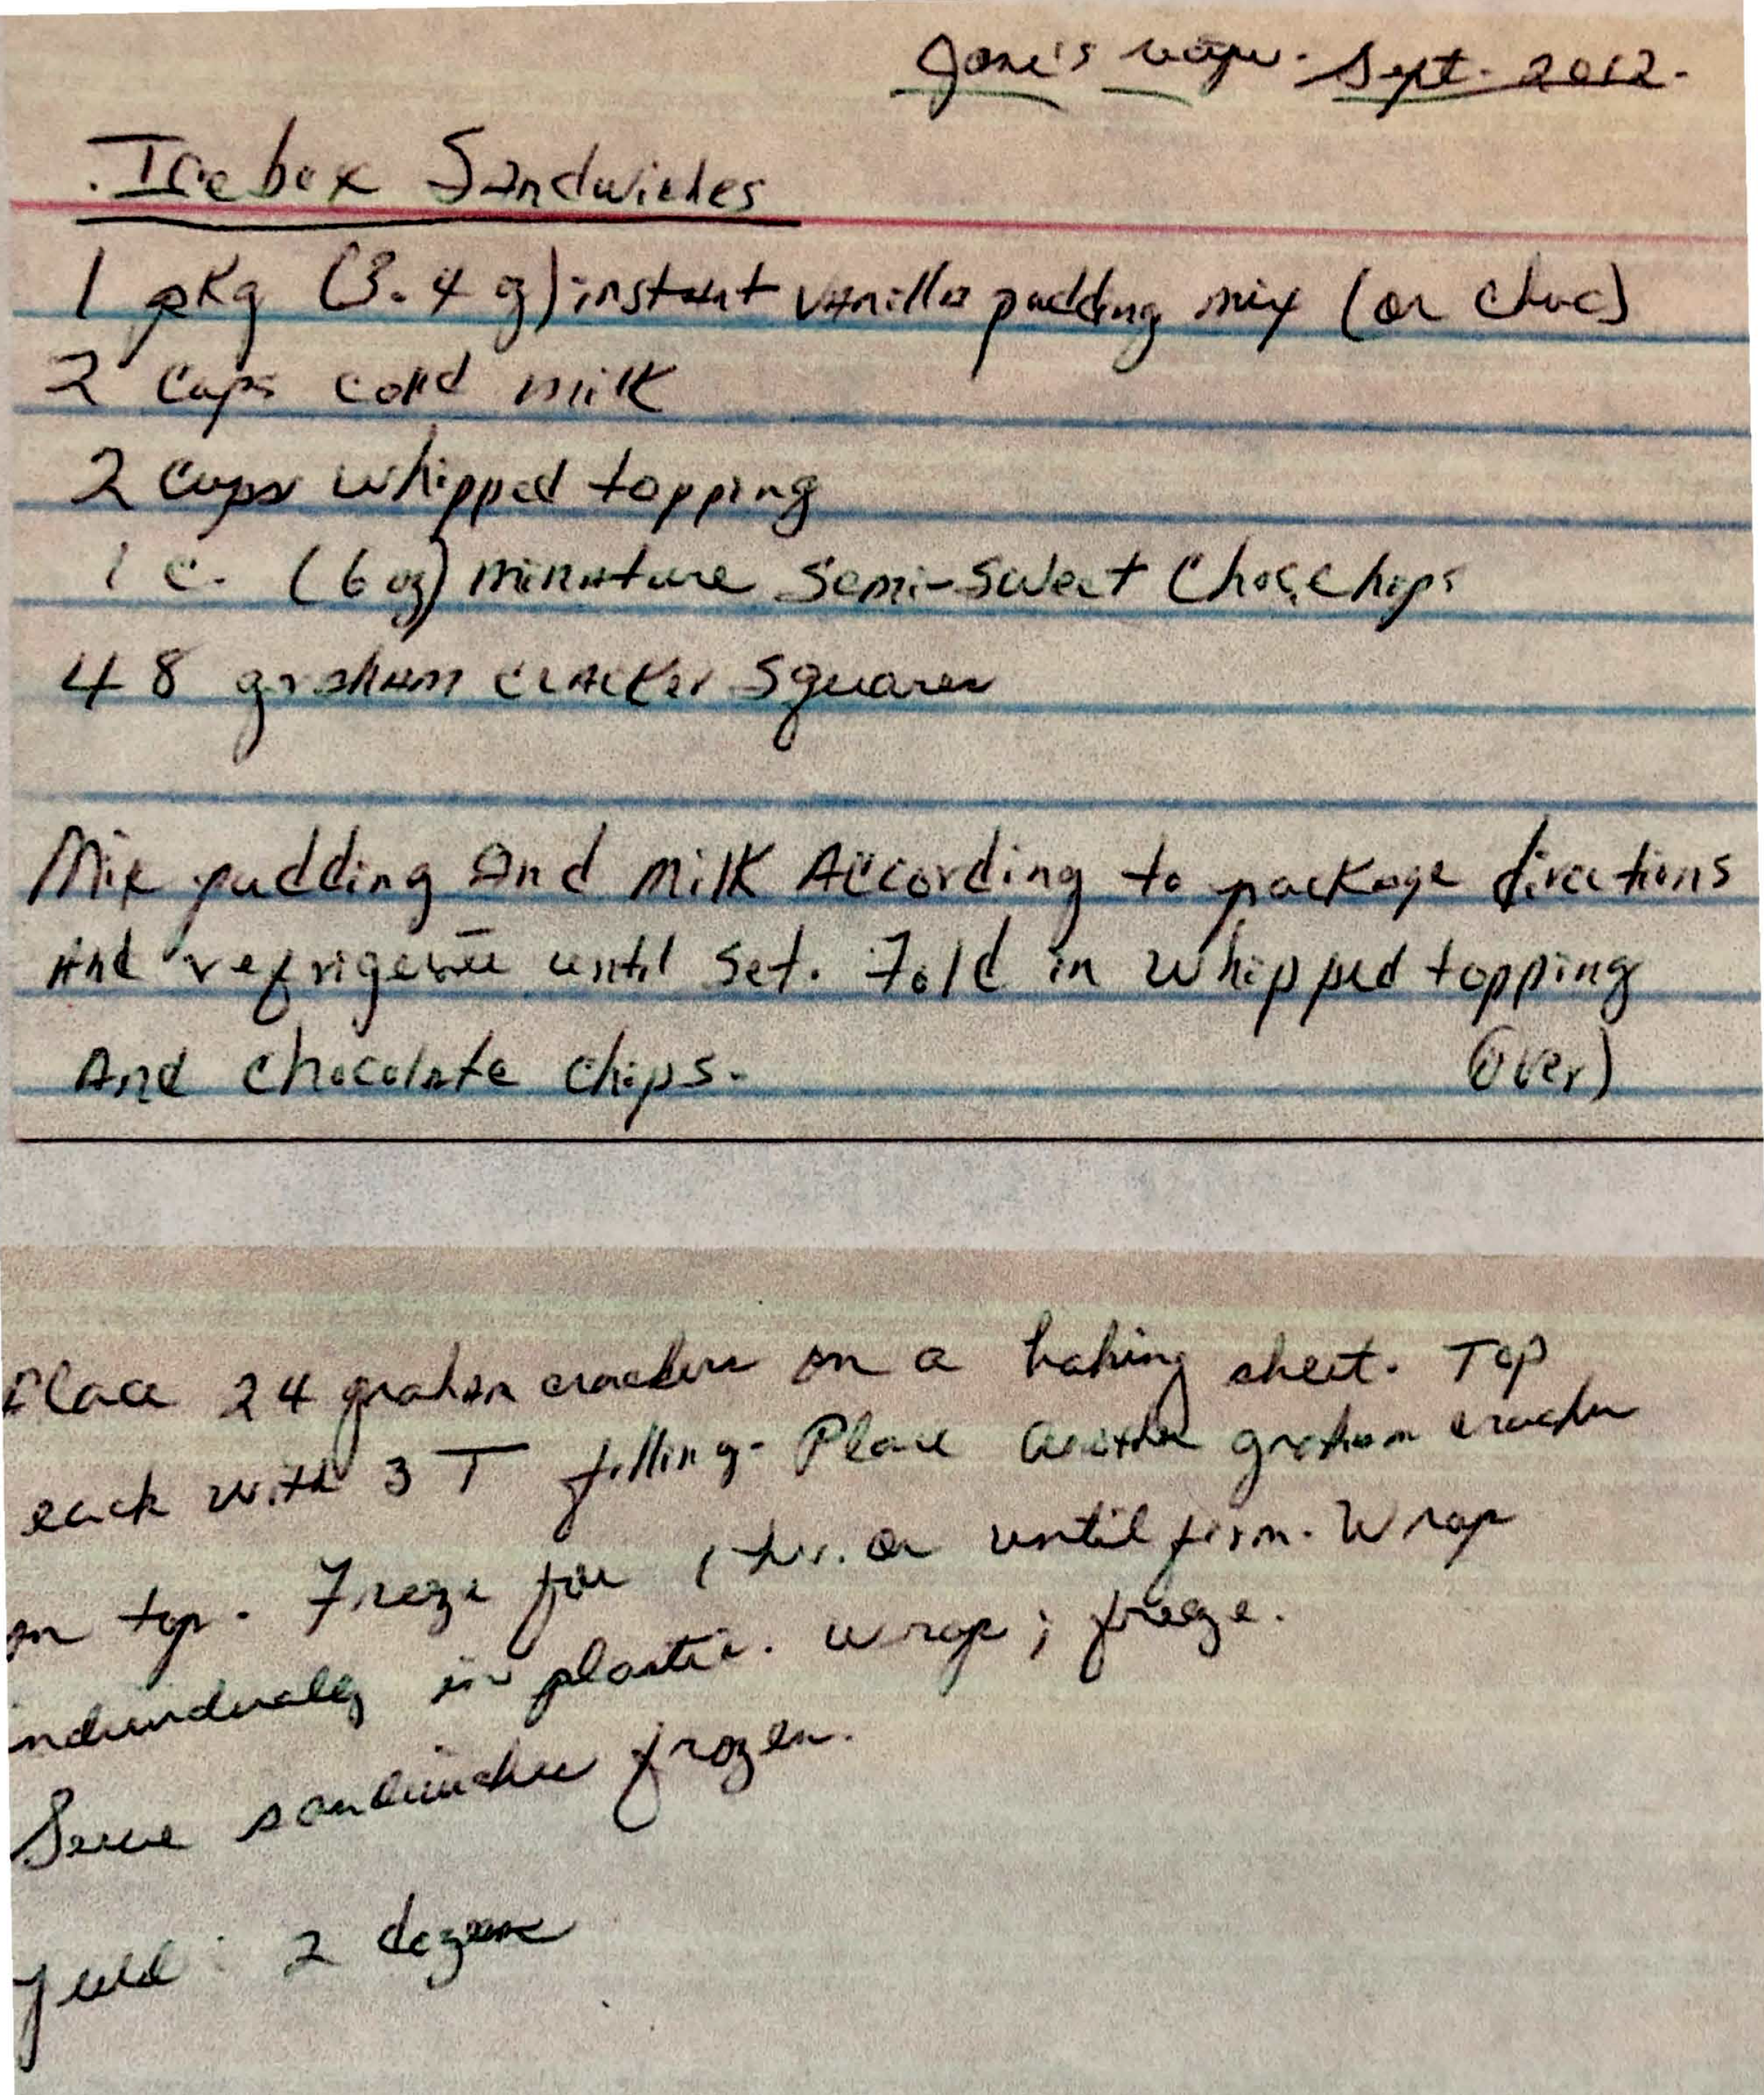 Jane's recipe. Sept. 2012.
Icebox Sandwiches
1 pkg (3.4 oz) instant vanilla pudding mix (or choc)
2 cups cold milk
2 cups whipped topping
1 c. (6 oz) miniature semi-sweet Choc. chips
48 graham cracker squares
Mix pudding And milk According to package directions
And refrigerate until set. Fold in whipped topping
And chocolate chips. (over)
Place 24 graham crackers on a baking sheet. Top
each with 3 T filling. Place another graham cracker
on top. Freeze for 1 hr. or until firm. Wrap
individually in plastic. wrap; freeze.
Serve sandwiches frozen.
Yield: 2 dozen